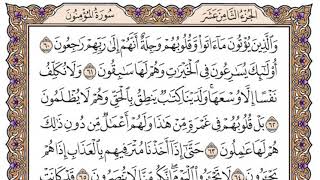 الجزء الثامن عشر سورة المؤمنون
وَالَّذِينَ يُؤْتُونَ مَا ءَاتَوا وَّقُلُوبُهُمْ وَجِلَةٌ أَنَّهُمْ إِلَىٰ رَبِّهِمْ رَٰجِعُونَ ٦٠
أُولَٰئِكَ يُسَٰرِعُونَ فِي الْخَيْرَٰتِ وَهُمْ لَهَا سَٰبِقُونَ ٦١ وَلَا نُكَلِّفُ
نَفْسًا إِلَّا وُسْعَهَا وَلَدَيْنَا كِتَٰبٌ يَنطِقُ بِالْحَقِّ وَهُمْ لَا يُظْلَمُونَ
٦٢ بَلْ قُلُوبُهُمْ فِي غَمْرَةٍ مِّنْ هَٰذَا وَلَهُمْ أَعْمَٰلٌ مِّن دُونِ ذَٰلِكَ
هُمْ لَهَا عَٰمِلُونَ ٦٣ حَتَّىٰ إِذَا أَخَذْنَا مُتْرَفِيهِم بِالْعَذَابِ إِذَا هُمْ
يَجْـَٔرُونَ ٦٤ لَا تَجْـَٔرُوا الْيَوْمَ إِنَّكُم مِّنَّا لَا تُنصَرُونَ ٦٥ قَدْ كَانَتْ